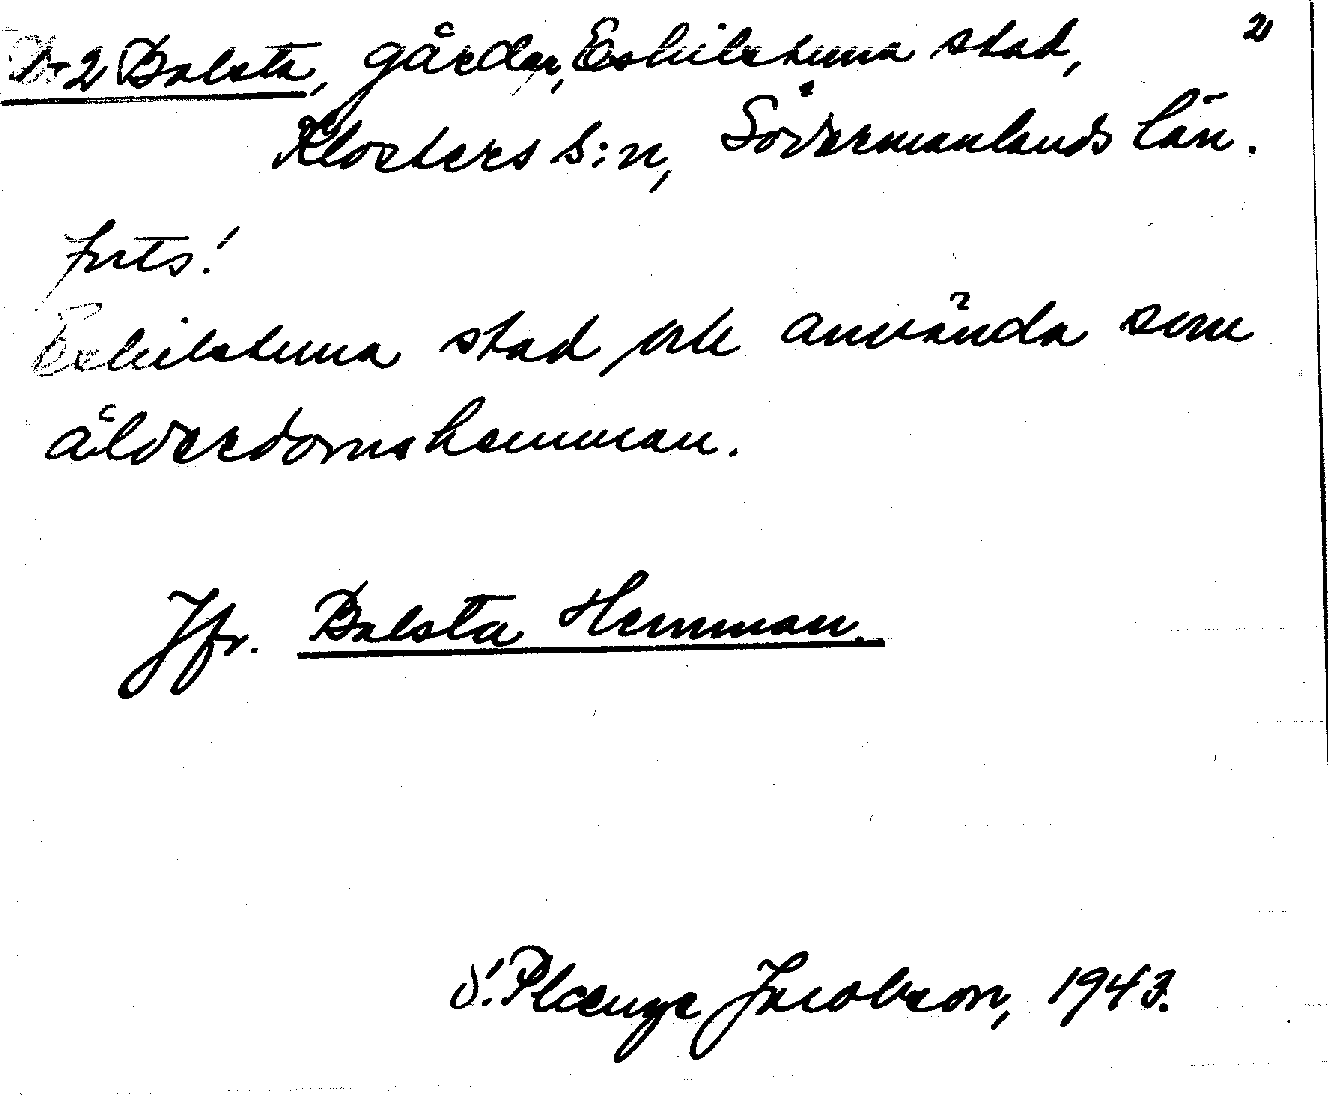 2 Balsta, gårdar, Eskilstuna stad, 2)
Klosters s:n, Södermanlands län.
forts!
Eskilstuna stad och använda som
ålderdomshemman.
Jfr. Balsta Hemman.
Jacobson, 1943.